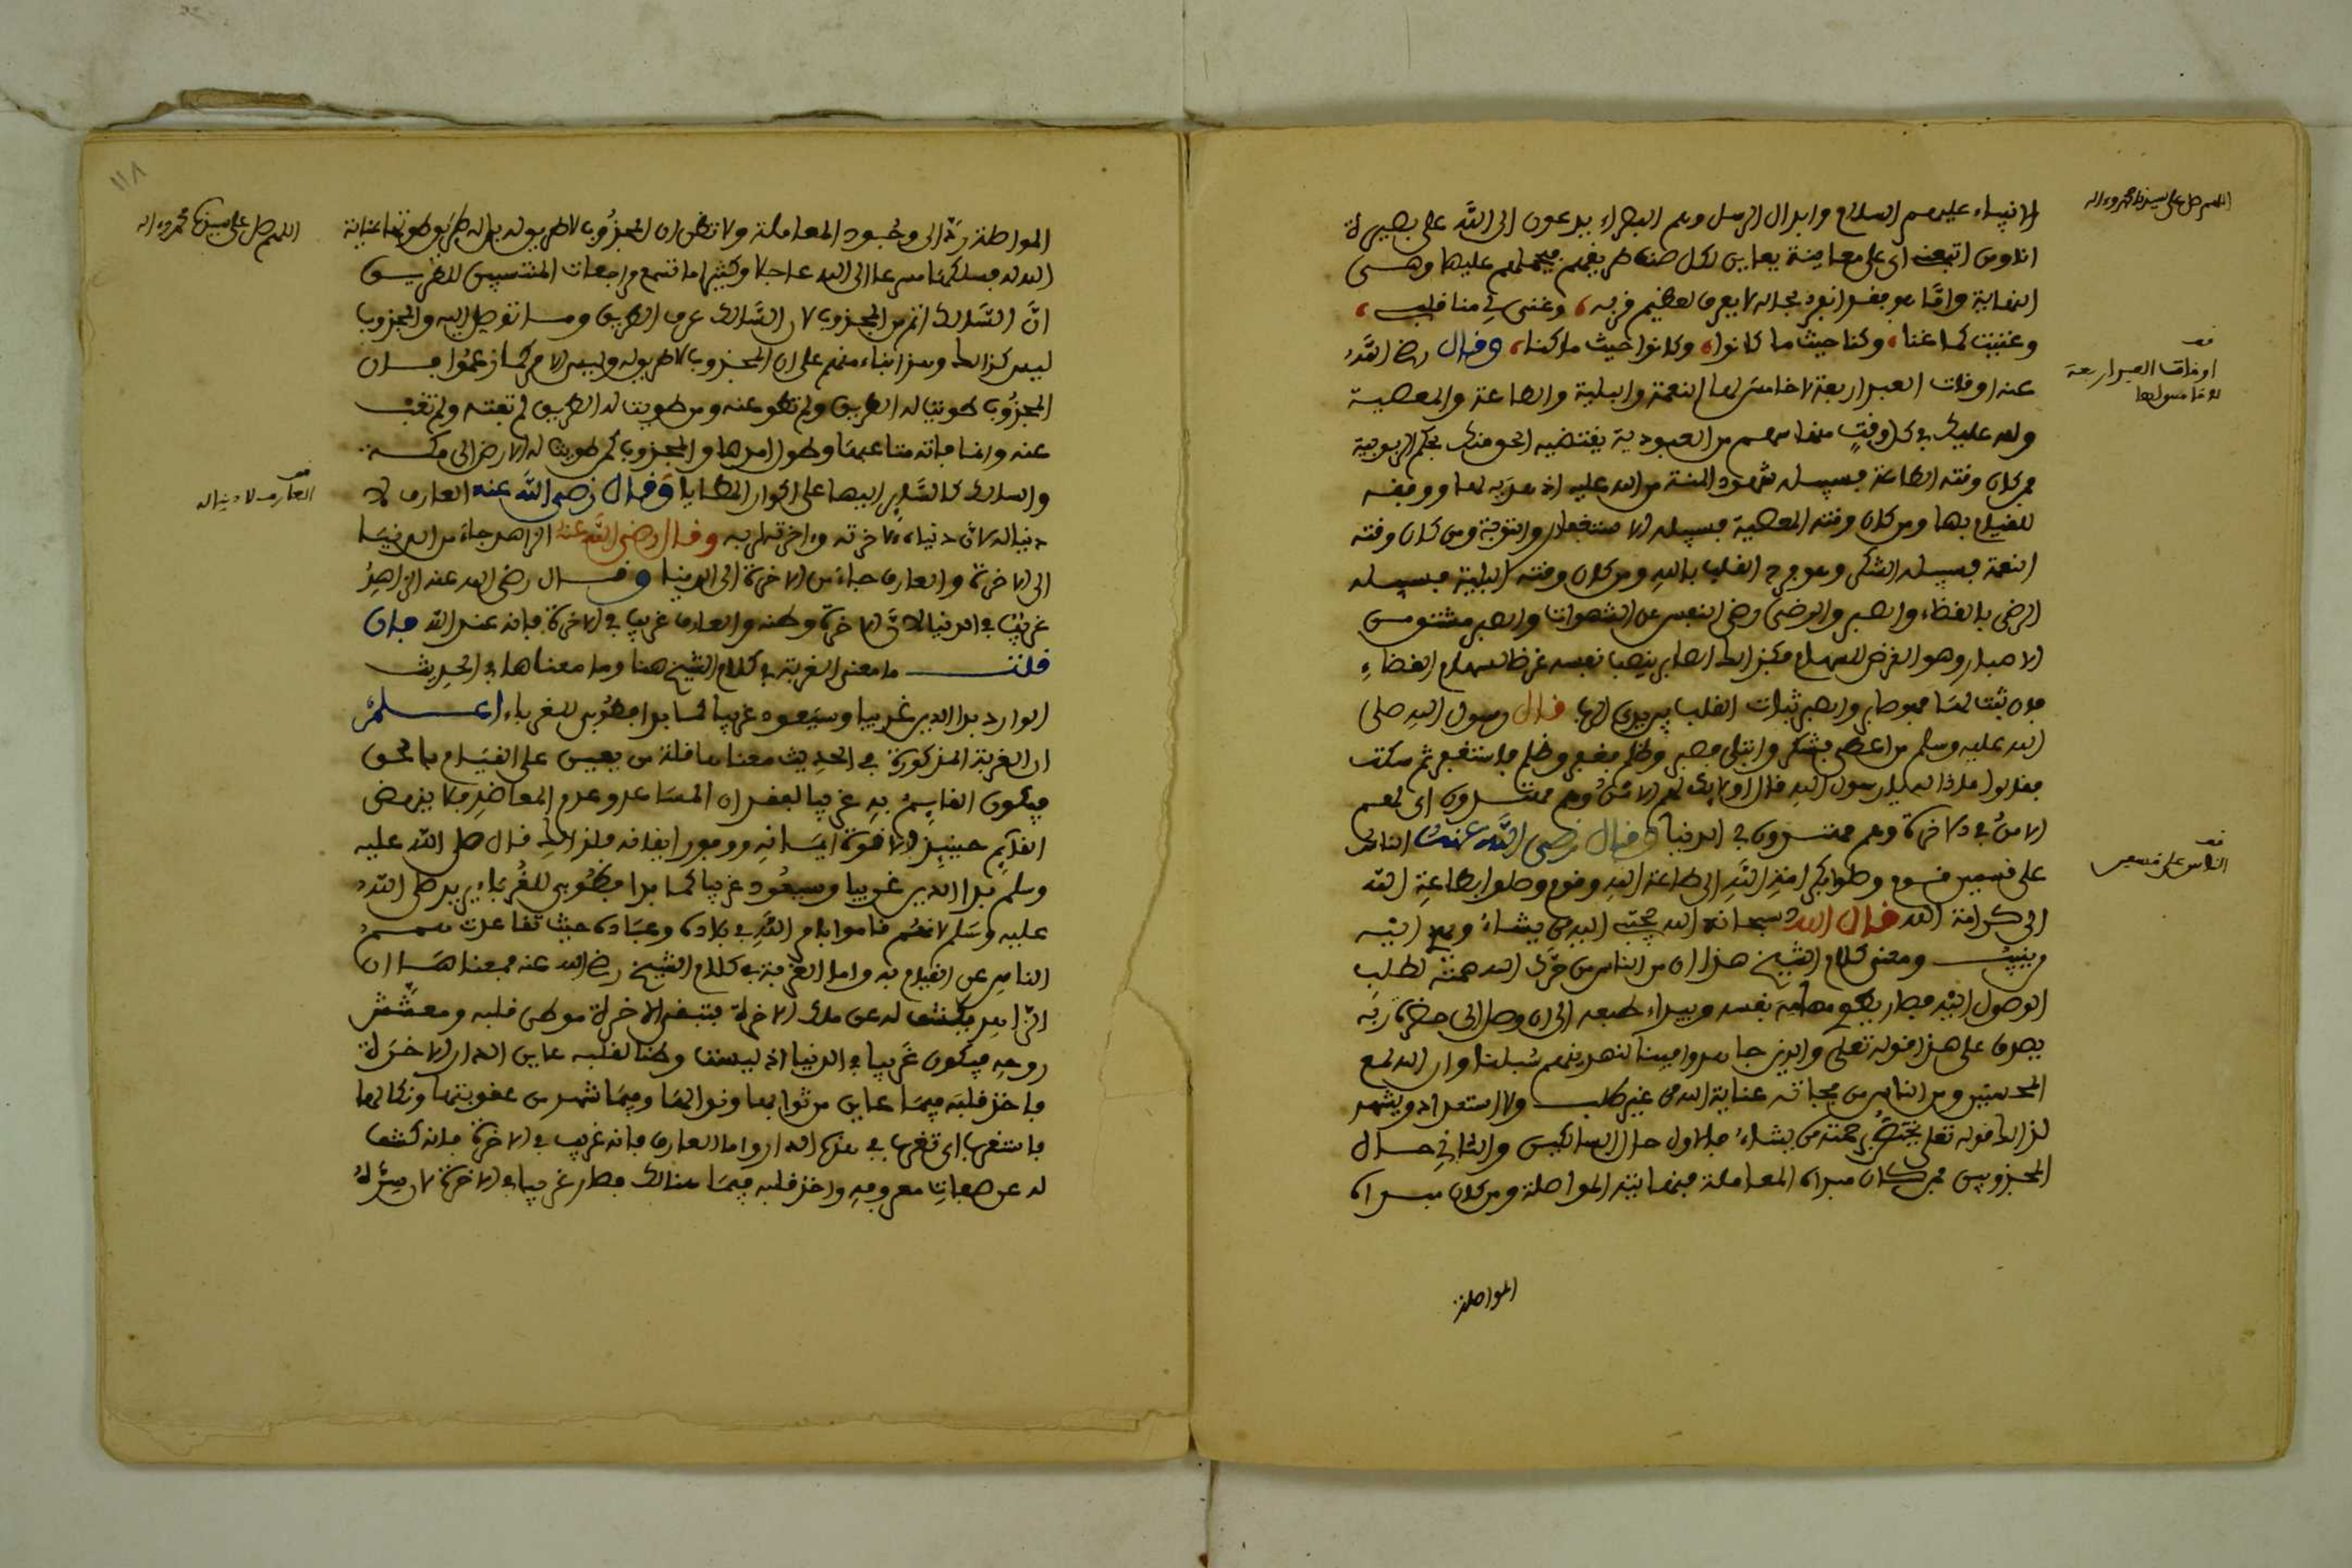 اللهم صل على سيدنا محمد وءاله
الانبياء عليهم السلام وابدال الرسل وهم البصراء يدعون الى الله على بصيرة
انا ومن اتبعنى اى على معاينة يعاين لكل صنف طريقهم فيحملهم عليها وهى
النفاية وامّا هو بفسر انفرد بحاله لا يعرف لعظيم قربه، وغنى لى منى قلبى،
وغنيت كما غنا، وكنا حيث ما كانوا، وكانوا حيث ما كنا، وقال رضى الله
عنه اوقات العبد اربعة لا خامس لها النعمة والبلية والطاعة والمعصية
ولله عليك فى كل وقت منها سهم من العبودية يقتضيه الحق منك بحكم الربوبية
فمن كان وقته الطاعة فسبيله شهود المنة من الله عليه اذ هديه لها ووفقه
للقيام بها ومن كان وقته المعصية فسبيله الاستغفار والتوبة ومن كان وقته
النعمة فسبيله الشكر وهو فرح القلب بالله ومن كان وقته البلية فسبيله
الرضى بالقضاء والصبر والرضى رضى النفس عن الشهوات والصبر مشتق من
الاصبار وهو الغرض للسهام فكذالك الصابر ينصب نفسه غرضا لسهام القضاء
فان ثبت لها فهو صابر والصبر ثبات القلب بين يدى الرب قال رسول الله صلى
الله عليه وسلم من اعطى فشكر وابتلى فصبر وظلم فغفر وظلم فاستغفر ثم سكت
فقالوا ماذا له يا رسول الله قال اولايك لهم الامن وهم مهتدون اى لهم
الامن فى الاخرة وهم مهتدون فى الدنيا وقال رضى الله عنه الناس
على قسمين قوم وصلوا بكرامة الله الى طاعة الله وقوم وصلوا بطاعة الله
الى كرامة الله قال الله سبحانه الله يجتبى اليه من يشاء ويهدى اليه
من ينيب ومعنى كلام الشيخ هذا ان من الناس من حرّك الله همته لطلب
الوصول اليه فصار يطوى مهامه نفسه وبيداء طبعه الى ان وصل الى حضرة ربه
يصدق على هذا قوله تعلى والذين جاهدوا فينا لنهدينهم سبلنا وان الله لمع
المحسنين ومن الناس من فجاته عناية الله من غير طلب ولا استعداد ويشهد
لذالك قوله تعلى يختص برحمته من يشاء فالاول حال السالكين والثانى حال
المجذوبين فمن كان مبداه المعاملة فنهايته المواصلة ومن كان مبداه
المواصلة
قف
اوقات العبد اربعة
لا خامس لها
قف
الناس على قسمين
١١٨
اللهم صل على سيدنا محمد وءاله
المواصلة ردّ الى وجود المعاملة ولا تظن ان المجذوب لا طريق له بل له طريق طوتها عناية
الله له فسلكها مسرعا الى الله عاجلا وكثيرا ما تسمع مراجعات المنتسبين للطريق
انّ السّالك اتم من المجذوب لان السّالك عرف الطريق وما توصل اليه والمجذوب
ليس كذالك وهذا بناء منهم على ان المجذوب لا طريق له وليس الامر كما زعموا فان
المجذوب طويت له الطريق ولم تطو عنه ومن طويت له الطريق لم تفته ولم تغب
عنه وانما فاته متاعبها وطول امدها والمجذوب كمن طويت له الارض الى مكة
والسالك كالسّاير اليها على اكوار المطايا وقال رضى الله عنه العارف لا
دنيا له لانّ دنياه لاخرته واخرته لربه وقال رضى الله عنه الزاهد جاء من الدنيا
الى الاخرة والعارف جاء من الاخرة الى الدنيا وقال رضى الله عنه الزاهد
غريب فى الدنيا لانّ الاخرة وطنه والعارف غريب فى الاخرة فانه عند الله فان
قلت ما معنى الغربة فى كلام الشيخ هنا وما معناها فى الحديث
الوارد بدا الدين غريبا وسيعود غريبا كما بدا فطوبى للغرباء اعلم
ان الغربة المذكورة فى الحديث معناها قلة من يعين على القيام بالحق
فيكون القايم به غريبا لفقدان المساعد وعدم المعاضد فلا ينهض
القايم حينيذ الا قوة ايمانه ووفور ايقانه فلذالك قال صلى الله عليه
وسلم بدا الدين غريبا وسيعود غريبا كما بدا فطوبى للغرباء يريد صلى الله
عليه وسلم لانهم قاموا بامر الله فى بلاده وعباده حيث تقاعدت همم
الناس عن القيام به واما الغربة فى كلام الشيخ رضى الله عنه فمعناها ان
الزّاهد يكشف له عن ملك الاخرة فتبقى الاخرة موطن قلبه ومعشش
روحه فيكون غريبا فى الدنيا اذ ليست وطنا لقلبه عاين الدار الاخرة
فاخذ قلبه فيما عاين من ثوابها ونوالها وفيما شهد من عقوبتها ونكالها
فاستغرب فى هذه الدار واما العارف فانه غريب فى الاخرة فانه كشف
له عن صفات معروفه واخذ قلبه فيما هنالك فصار غريبا فى الاخرة لان سرّه
قف
العارف لا دنيا له